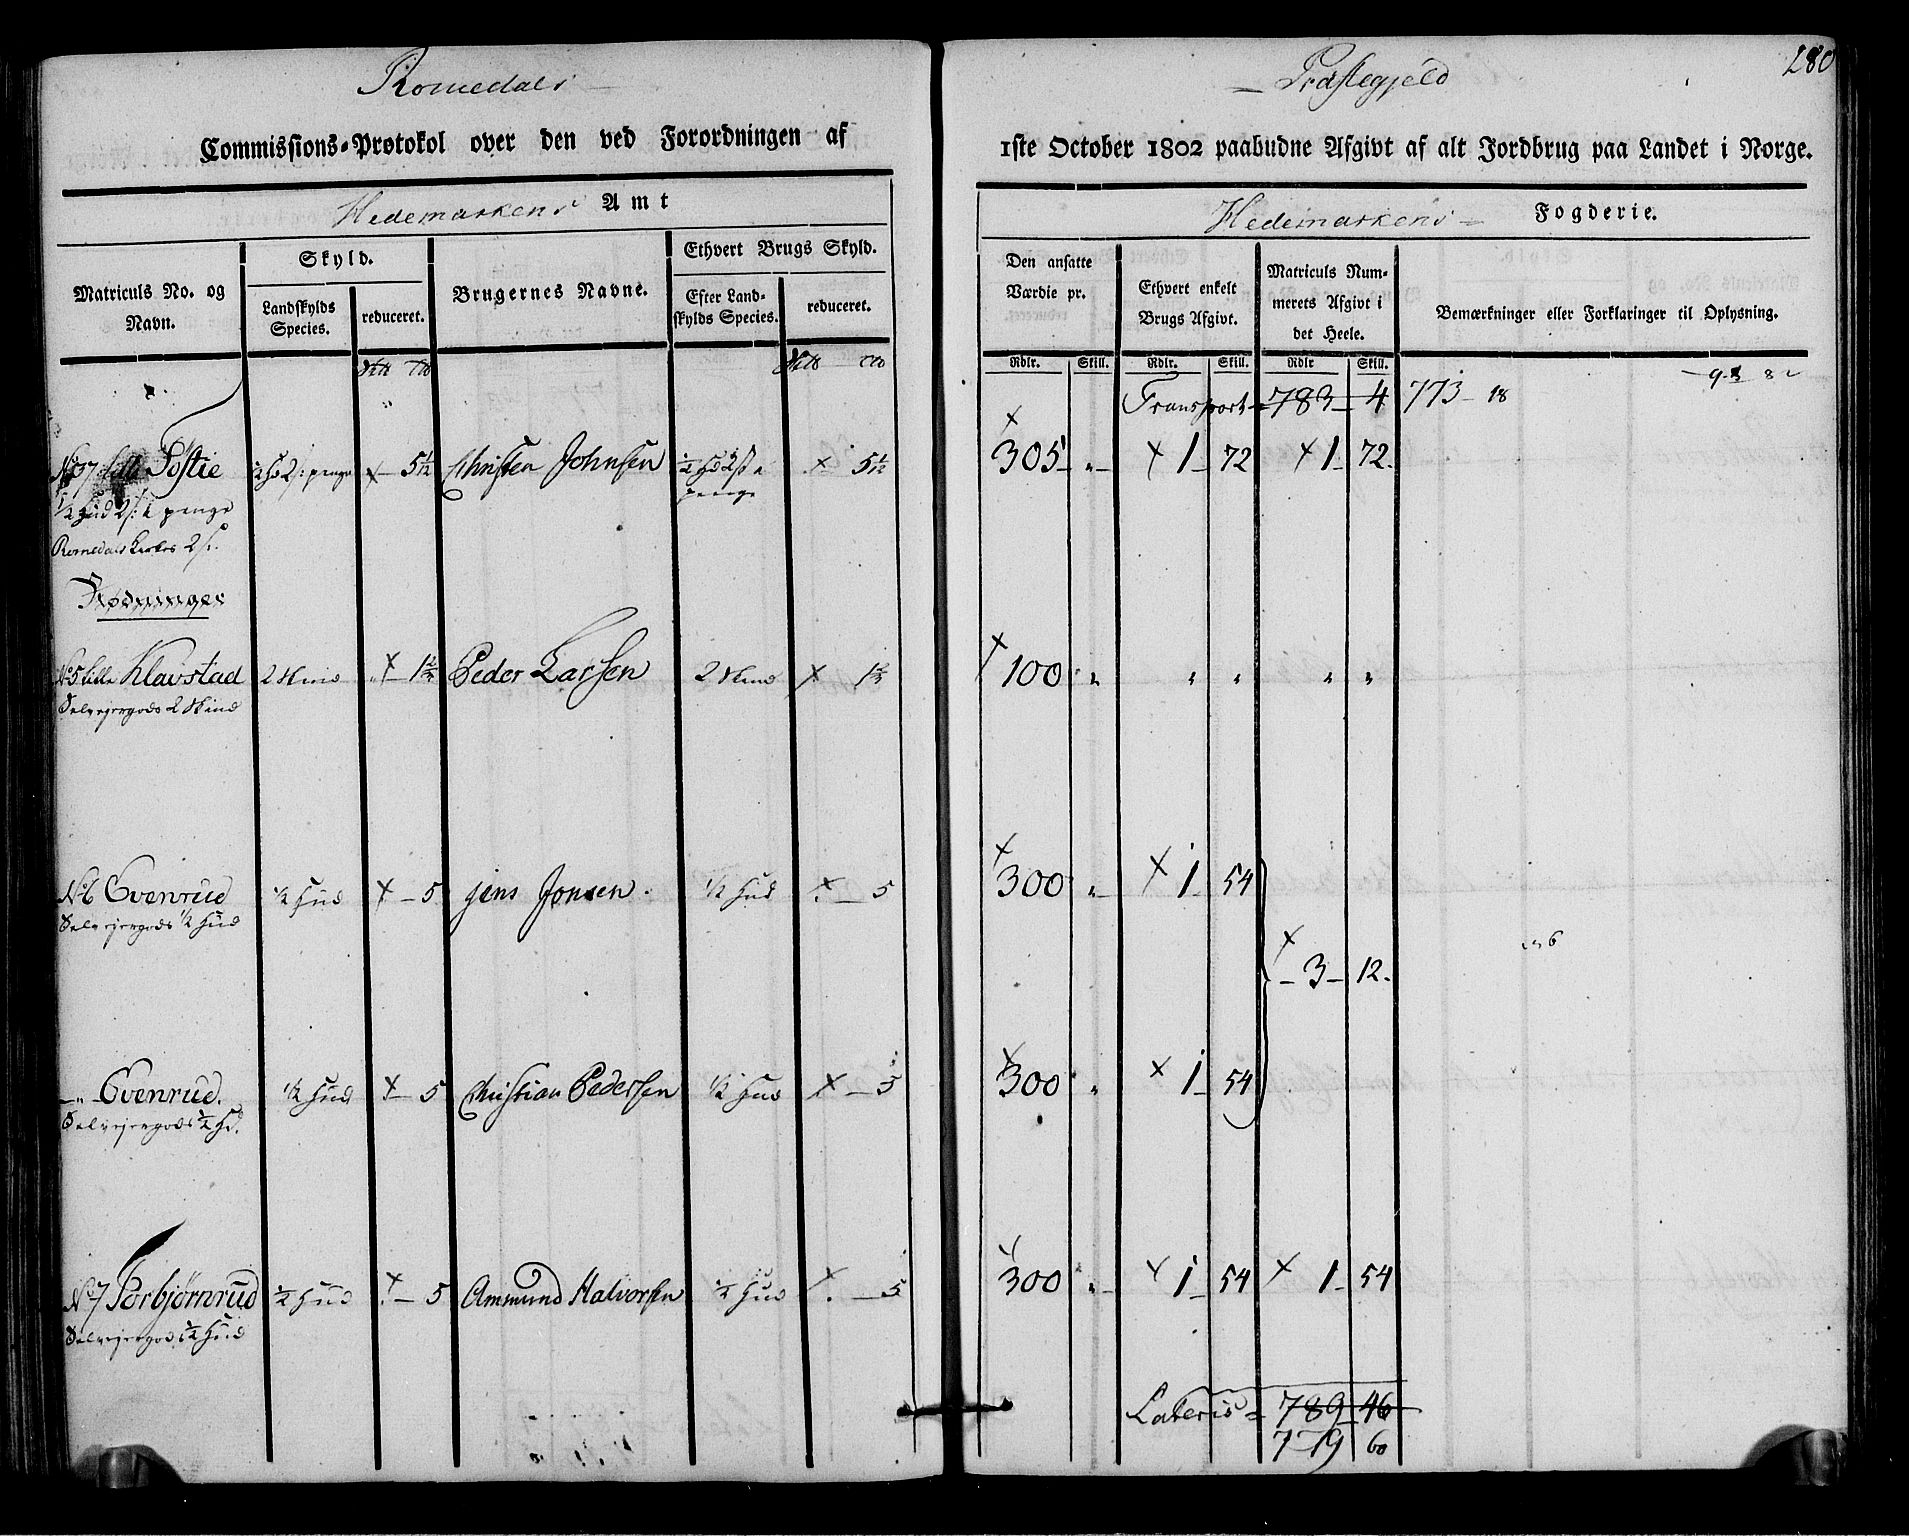 Romedals
Commissions-Protokol over den ved Forordningen af
Hedemarkens Amt
Matriculs No. og Navn.
Skyld.
Landskylds Species.
reduceret.
Brugernes Navne.
Ethvert Brugs Skyld.
Efter Landskylds Species.
reduceret.
No 37 Lille Tostie ½ Hd 2 s: penge × – 5 1/12 Christen Johnsen ½ Hd 2 s a penge × 5 1/12
½ Hud 2 s: penge
Romedals Kirkes 2 s.
Rødninger
No 5 Lille Klavstad 2 Skind × – 1 2/3 Peder Larsen 2 Skind × 1 2/3
Selvejergods 2 Skind
No 6 Evenrud ½ Hud × – 5 Jens Jonsen. ½ Hud × – 5
Selvejergods ½ Hud
– „ – Evenrud. ½ Hud × – 5 Christian Pedersen ½ Hud × – 5
Selvejergods ½ Hd.
No 7 Torbjørnrud ½ Hud × – 5 Ammund Halvorsen ½ Hud × – 5
Selvejergods ½ Hud
Præstegjeld
280
1ste October 1802 paabudne Afgivt af alt Jordbrug paa Landet i Norge.
Hedemarkens Fogderie.
Den ansatte Værdie pr.
Ethvert enkelt Brugs Afgivt.
Matriculs Nummerets Afgivt i det Heele.
Bemærkninger eller Forklaringer til Oplysning.
Rdlr. Skill. Rdlr. Skill. Rdlr Skill.
Transport 783 – 4 773 – 18
× 305 – „ – × 1 – 72 × 1 – 72.
× 100 „ „ „ „ „
× 300 „ – × 1 – 54
× – 3 – 12.
× 300 „ × 1 – 54
× 300 „ – × 1 54 × 1 – 54
Lateris = 789 – 46
779 60